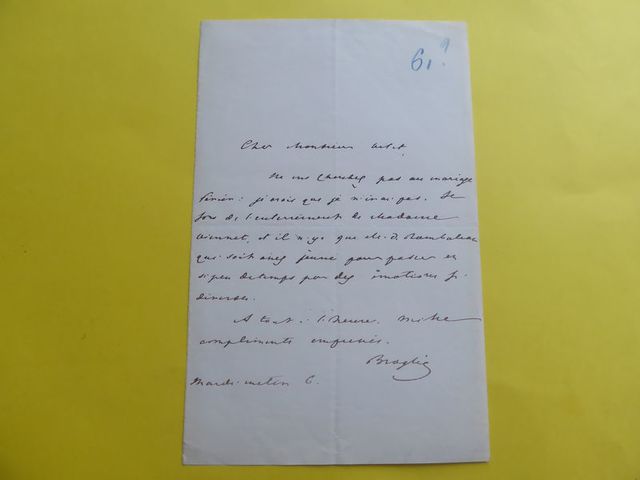 61?
Cher Monsieur
Ne me cherchez pas au mariage
: je vois que je n'irai pas. Je
sors de l'enterrement de Madame
Viennet, et il n'y a que M. de Rambuteau
qui soit assez jeune pour passer en
si peu de temps par des émotions si
diverses.
A tout à l'heure. Mille
compliments empressés.
Broglie
Mardi matin 6.